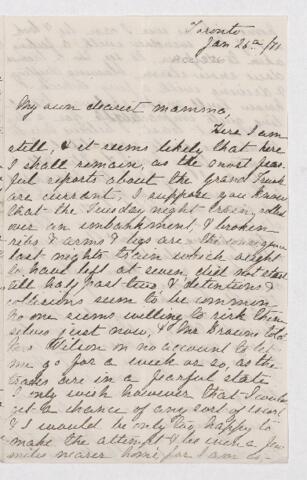 Toronto
Jan 26th /71
My own dearest mamma,
Here I am
still, & it seems likely that here
I shall remain, as the most fear-
ful reports about the Grand Trunk
are current, I suppose you know
that the Tuesday night train, rolled
over an embankment, & broken
ribs & arms & legs are the consequence
last nights train which ought
to have left at seven, did not start
till half past two, & detentions &
collisions seem to be common
no one seems willing to risk them
selves just now, & Mr Brown told
Mrs Wilson on no account to let
me go for a week or so, as the
are in a fearful state
I only wish however that I could
get a chance of any sort of escort
& I would be only too happy to
make the attempt & be even a few
miles nearer home, for I am so